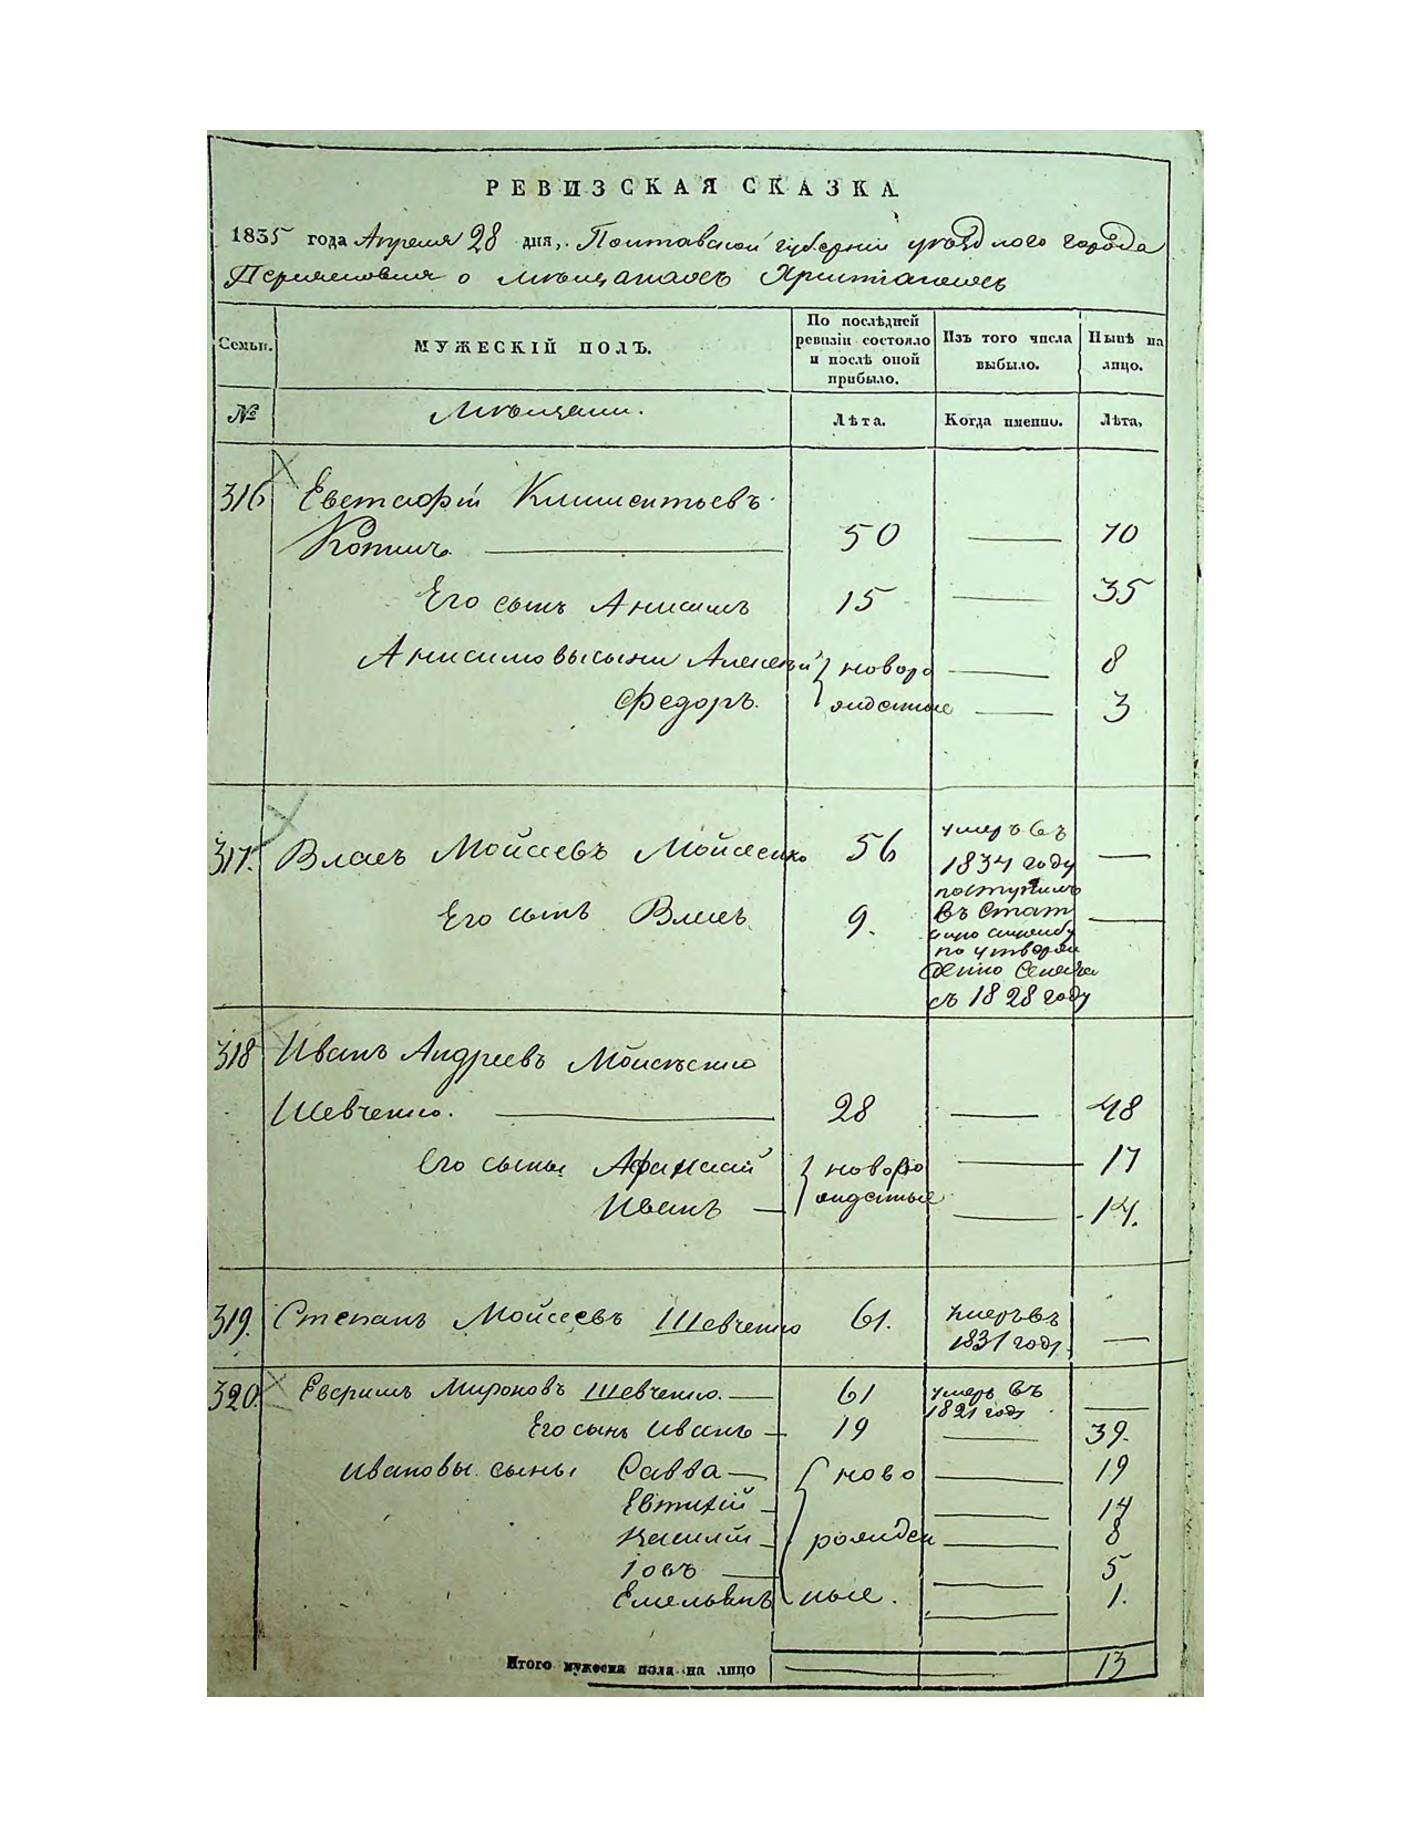 РЕВИЗСКАЯ СКАЗКА
1835 года Апреля 28 дня, Полтавской губернии уѣзднаго города
Переяславля о мѣщанахъ Христіанахъ
Семьи. МУЖЕСКІЙ ПОЛЪ. По послѣдней ревизіи состояло и послѣ оной прибыло. Изъ того числа выбыло. Нынѣ на лицо.
№ Мѣщане. Лѣта. Когда именно. Лѣта.
316 Евстафій Климентьевъ
Котичъ 50 70
Его сынъ Анисимъ 15 35
Анисимовы сыны Алексѣй новоро 8
Федоръ. жденные 3
317. Власъ Мойсеевъ Мойсеенко 56 умеръ въ
1834 году
Его сынъ Власъ 9. поступилъ
въ Стат
скую службу
по утверж
дению Сената
съ 1828 году
318 Иванъ Андреевъ Моисѣенко
Шевченко. 28 48
Его сыны Афанасій новоро 17
Иванъ жденные 14.
319. Степанъ Мойсеевъ Шевченко 61. умеръ въ
1831 году.
320. Евфимъ Мироновъ Шевченко. 61 умеръ въ
1821 году
Его сынъ Иванъ 19 39.
Ивановы сыны Савва ново 19
Евтихій 14
Василій рожден 8
Іовъ 5
Емельянъ ные. 1.
Итого мужеска пола на лицо 13